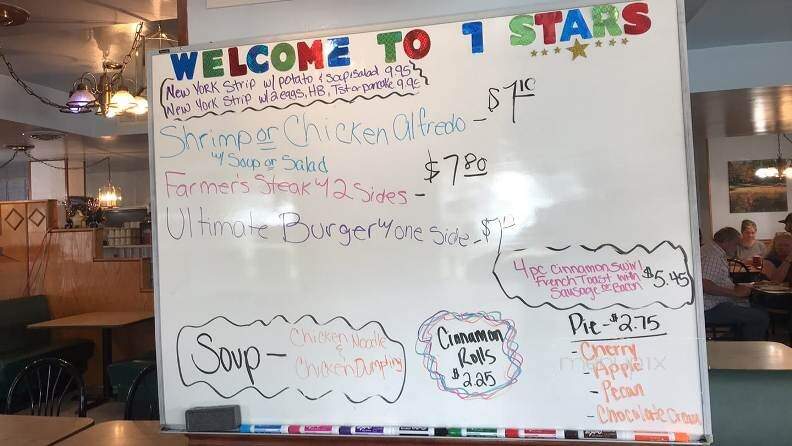 WELCOME TO 1 STARS
New York Strip w/ potato & soup/salad 9.95
New York Strip w/ 2 eggs, HB, Tst or pancake 9.95
Shrimp or Chicken Alfredo - $7.10
w/ Soup or Salad
Farmer's Steak w/ 2 Sides - $7.80
Ultimate Burger w/ one side - $7
4 pc cinnamon swirl
French Toast with $5.45
Sausage or Bacon
Soup - Chicken Noodle
&
Chicken Dumpling
Cinnamon
Rolls
$2.25
Pie - $2.75
- Cherry
- Apple
- Pecan
- Chocolate Cream